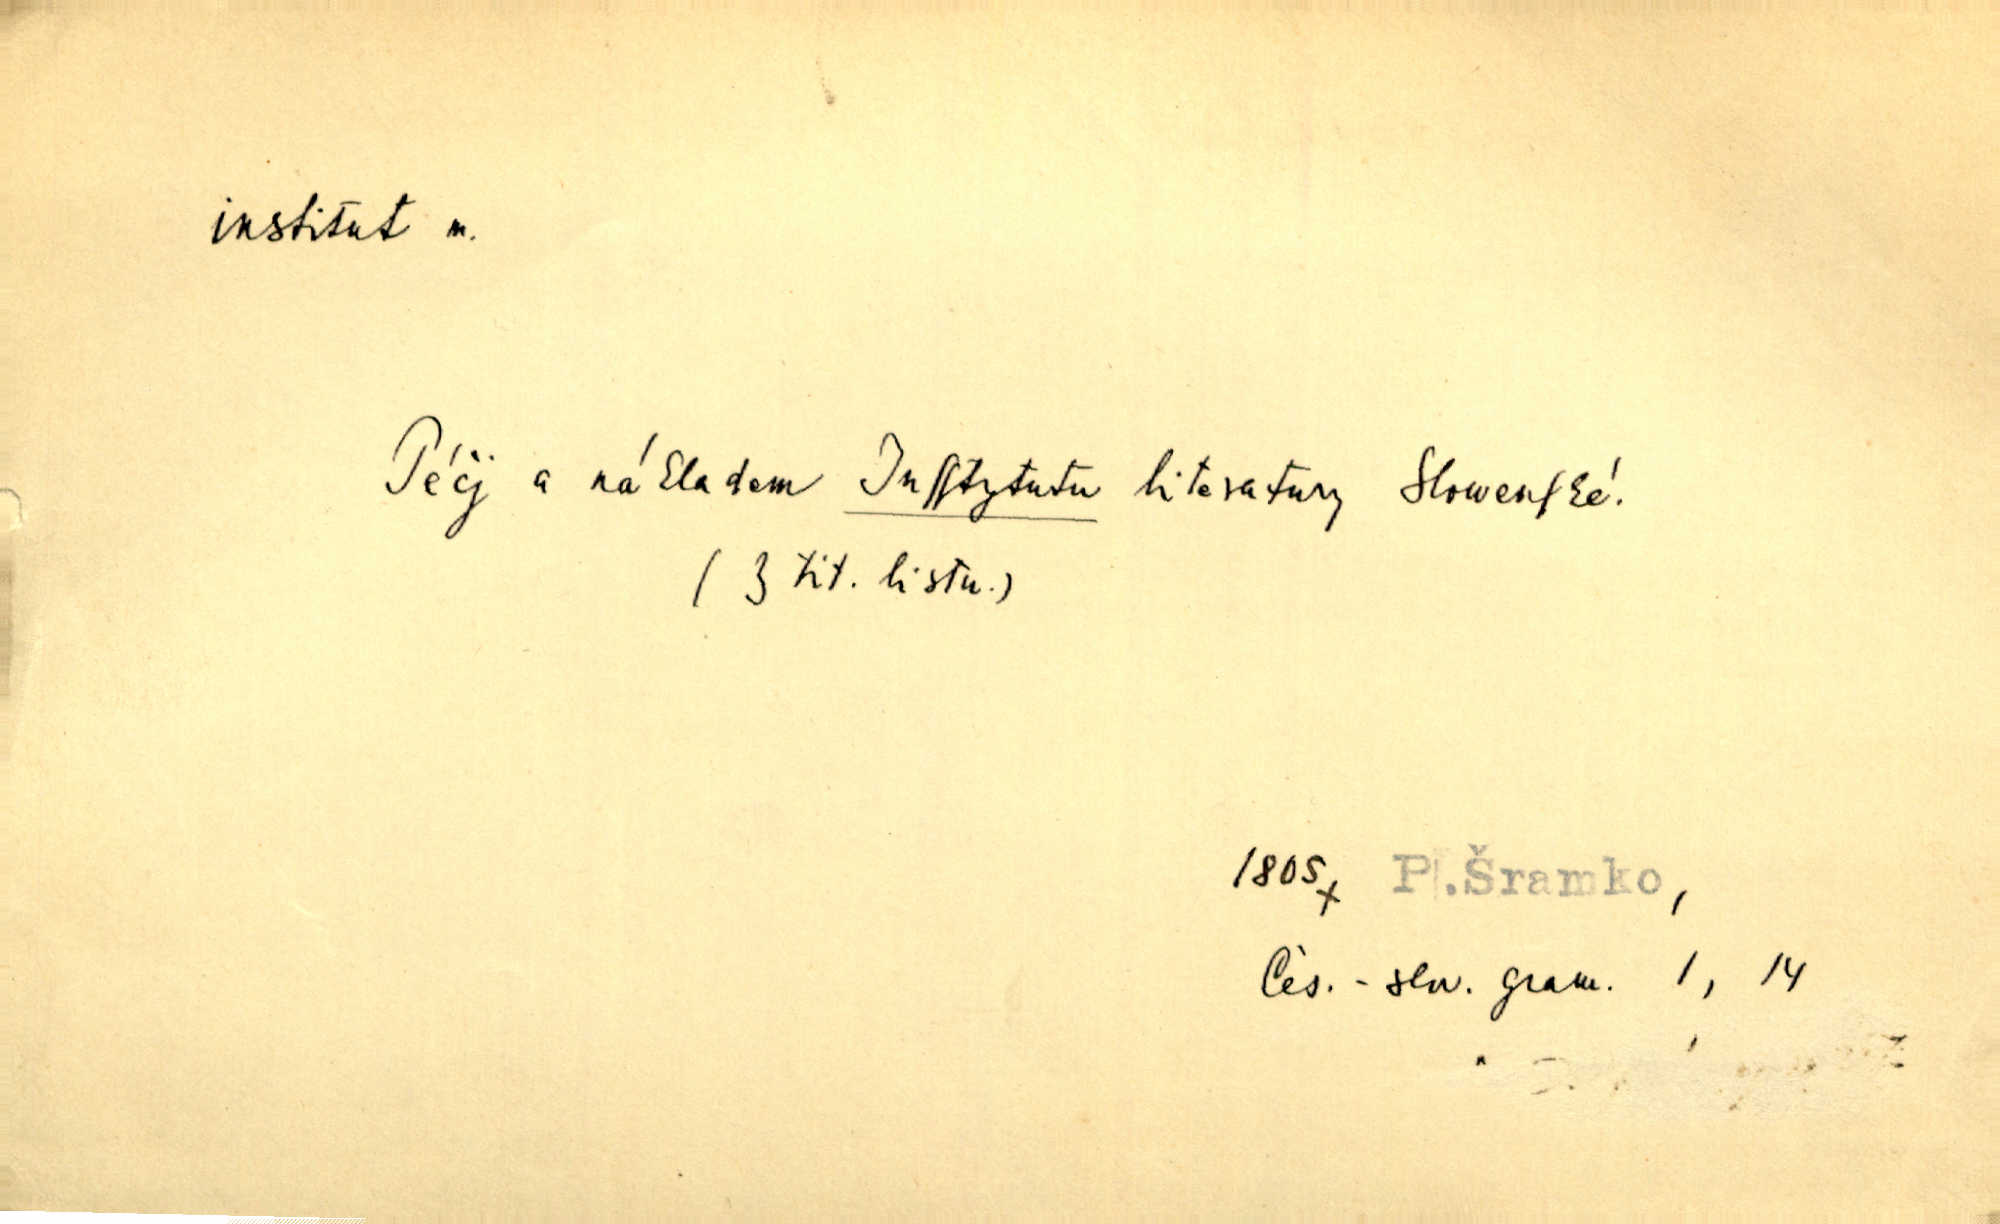 institut m.
Péčj a nákladem Inſſtytutu literatury Slowenſké.
(Z tit. listu.)
1805x P.Šramko,
Čes. - slov. gram. 1, 14